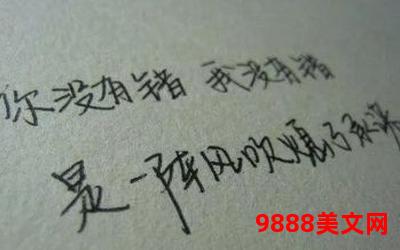 你没有错 我没有错
是一阵风吹熄了承诺
9888美文网